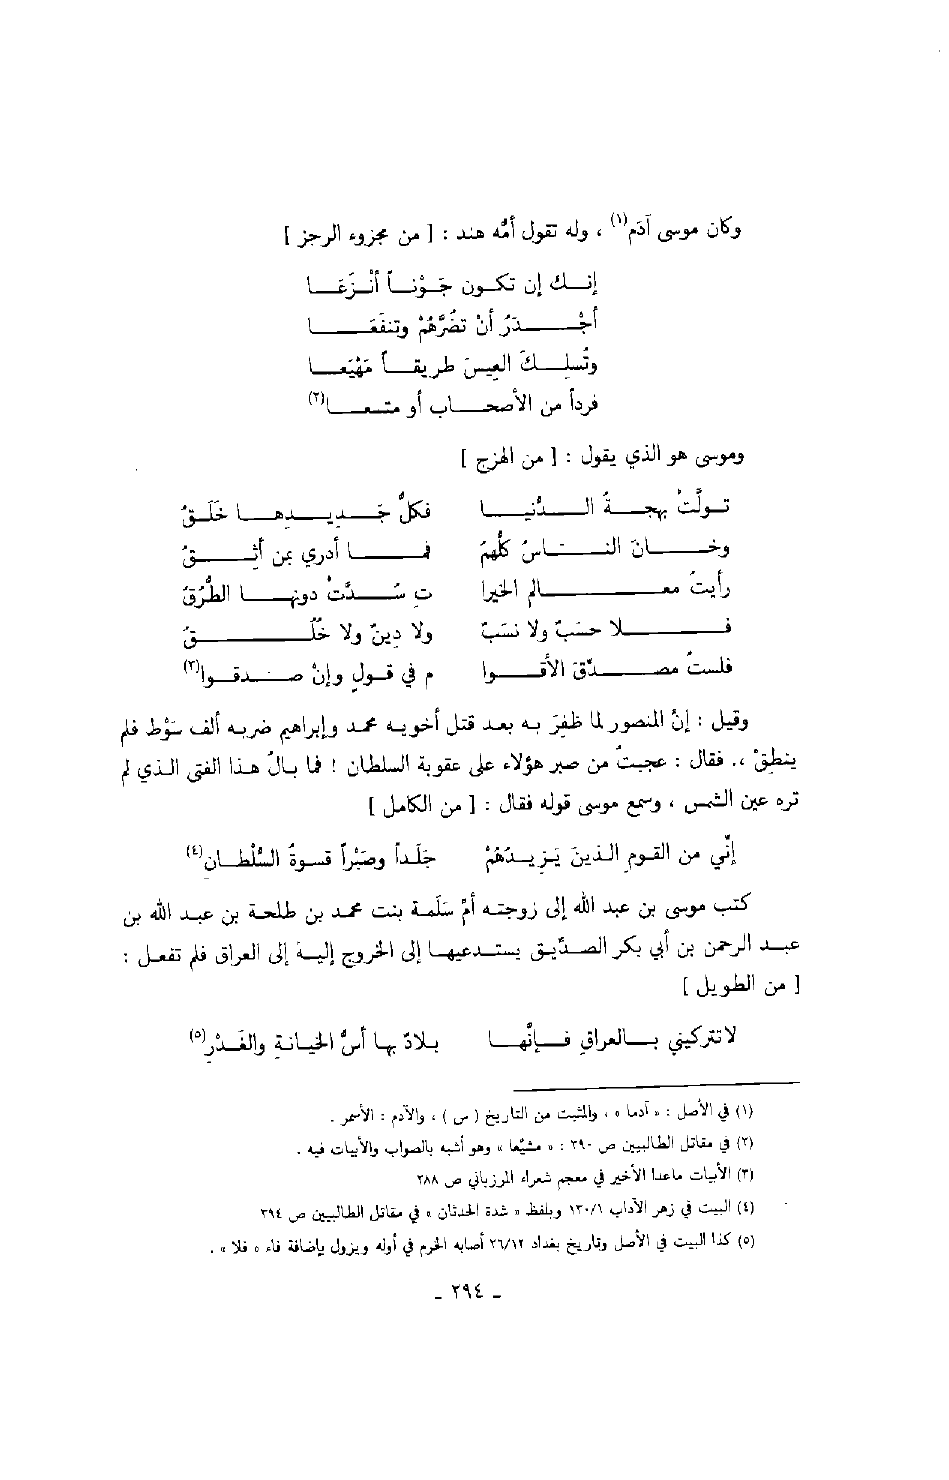 وكان موسى آدَم(١) ، وله تقول أمُّه هند : [ من مجزوء الرجز ]
إنك إن تكون جَوْناً أنْزَعَا
أجْدَرُ أنْ تضُرَّهُمْ وتنفَعَا
وتُسلِكَ العِيسَ طريقاً مَهْيَعا
فرداً من الأصحاب أو متبعا(٢)
وموسى هو الذي يقول : [ من الهزج ]
تولَّتْ بهجةُ الدُّنيا فكلُّ جَديدِها خَلَقُ
وخانَ الناسُ كلُّهمُ فما أدري بمن أثِقُ
رأيتُ معالم الخيرا تِ سُدَّتْ دونها الطُّرُقُ
فلا حسَبٌ ولا نسَبٌ ولا دِينٌ ولا خُلُقُ
فلستُ مصدِّقَ الأقوا م في قولٍ وإنْ صدقوا(٣)
وقيل : إنَّ المنصور لما ظفِرَ به بعد قتل أخويه محمد وإبراهيم ضربه ألف سَوْط فلم
ينطِقْ ، فقال : عجبتُ من صبر هؤلاء على عقوبة السلطان ! فما بالُ هذا الفتى الذي لم
تره عين الشمس ، وسمع موسى قوله فقال : [ من الكامل ]
إنّي من القومِ الذينَ يَزِيدُهُمْ جَلَداً وصَبْراً قسوةُ السُّلْطان(٤)
كتب موسى بن عبد الله إلى زوجته أمّ سَلَمة بنت محمد بن طلحة بن عبد الله بن
عبد الرحمن بن أبي بكر الصدّيق يستدعيها إلى الخروج إليهَ إلى العراق فلم تفعل :
[ من الطويل ]
لاتتركيني بالعراقِ فإنَّها بلادٌ بها أسُّ الخيانةِ والغَدْرِ(٥)
(١) في الأصل : « آدما » ، والمثبت من التاريخ ( س ) ، والآدم : الأسمر .
(٢) في مقاتل الطالبيين ص ٣٩٠ : « مشيّعا » وهو أشبه بالصواب والأبيات فيه .
(٣) الأبيات ماعدا الأخير في معجم شعراء المرزباني ص ٢٨٨
(٤) البيت في زهر الآداب ١٣٠/١ وبلفظ « شدة الحدثان » في مقاتل الطالبيين ص ٣٩٤
(٥) كذا البيت في الأصل وتاريخ بغداد ٢٦/١٣ أصابه الخرم في أوله ويزول بإضافة فاء « فلا » .
- ٢٩٤ -